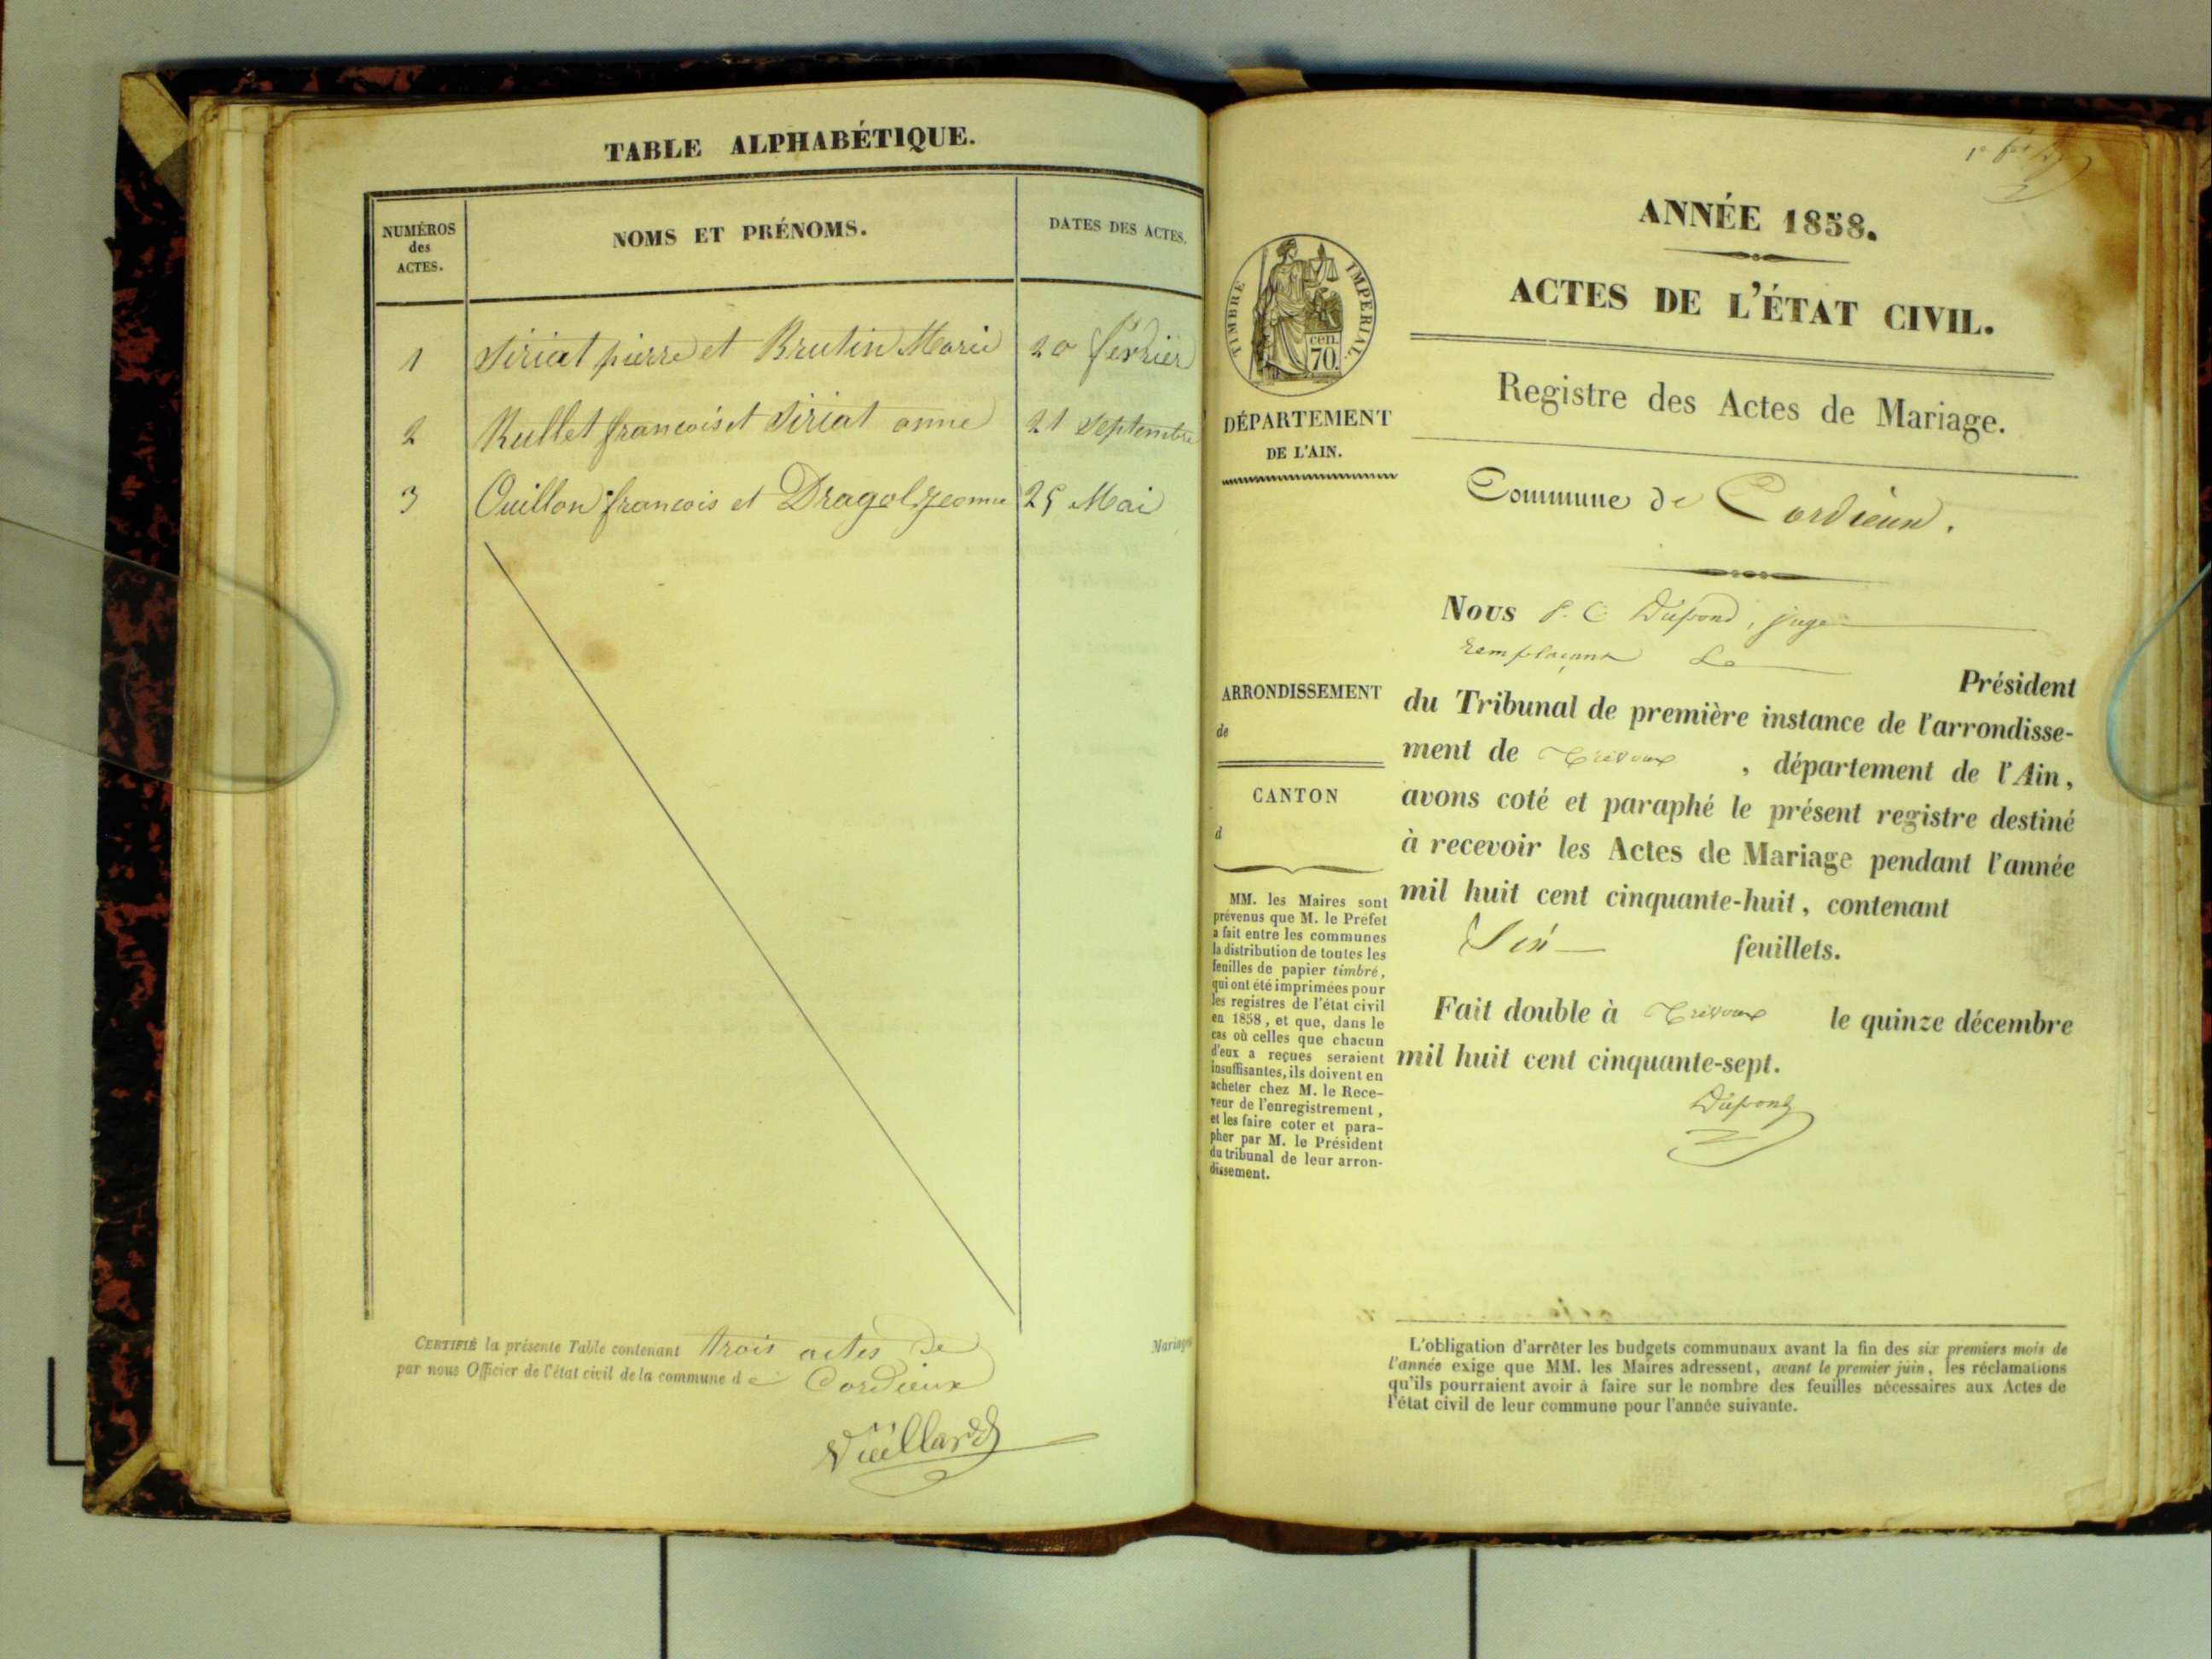 TABLE ALPHABÉTIQUE.
NUMÉROS
des
ACTES.
NOMS ET PRÉNOMS.
DATES DES ACTES.
1 Siriat pierre et Brutin Marie 20 février
2 Rullet francois et Siriat anne 21 Septembre
3 Ouillon francois et Dragol Jeanne 25 Mai
CERTIFIÉ la présente Table contenant trois actes de Mariages
par nous Officier de l'état civil de la commune de Cordieux
Vieillard
ANNÉE 1858.
ACTES DE L'ÉTAT CIVIL.
Registre des Actes de Mariage.
Commune de Cordieux.
TIMBRE IMPÉRIAL
cen.
70.
DÉPARTEMENT
DE L'AIN.
ARRONDISSEMENT
de
CANTON
d
MM. les Maires sont
prévenus que M. le Préfet
a fait entre les communes
la distribution de toutes les
feuilles de papier timbré,
qui ont été imprimées pour
les registres de l'état civil
en 1858, et que, dans le
cas où celles que chacun
d'eux a reçues seraient
insuffisantes, ils doivent en
acheter chez M. le Rece-
veur de l'enregistrement,
et les faire coter et para-
pher par M. le Président
du tribunal de leur arron-
dissement.
Nous P. C. Dupond, juge
remplaçant Le
Président
du Tribunal de première instance de l'arrondisse-
ment de Trévoux, département de l'Ain,
avons coté et paraphé le présent registre destiné
à recevoir les Actes de Mariage pendant l'année
mil huit cent cinquante-huit, contenant
Six feuillets.
Fait double à Trévoux le quinze décembre
mil huit cent cinquante-sept.
Dupond
L'obligation d'arrêter les budgets communaux avant la fin des six premiers mois de
l'année exige que MM. les Maires adressent, avant le premier juin, les réclamations
qu'ils pourraient avoir à faire sur le nombre des feuilles nécessaires aux Actes de
l'état civil de leur commune pour l'année suivante.